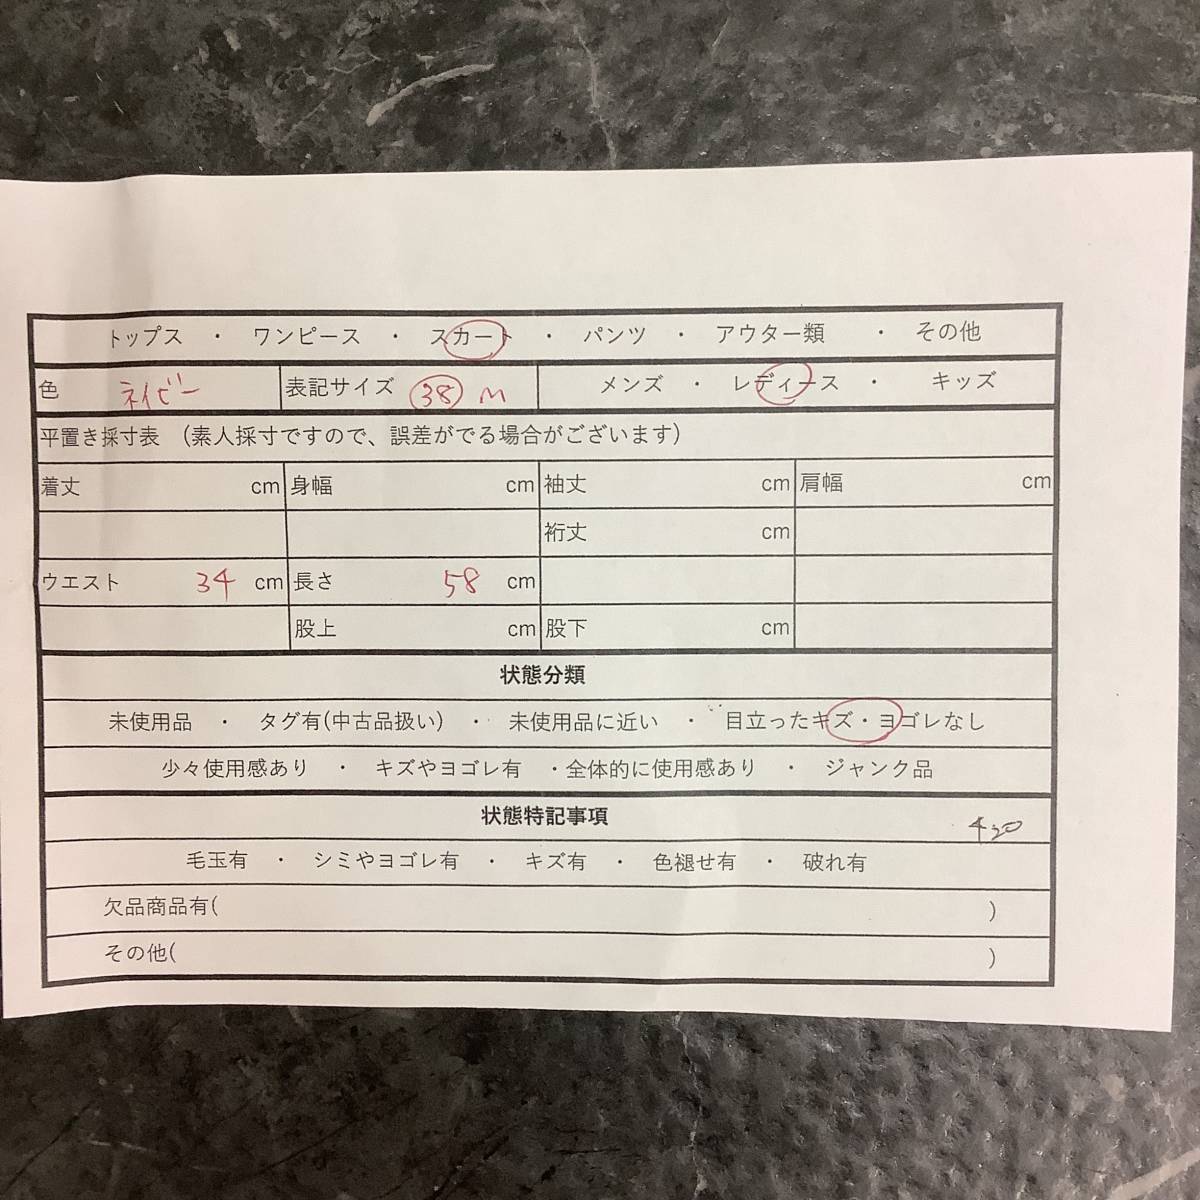 トップス ・ ワンピース ・ スカート ・ パンツ ・ アウター類 ・ その他
色 ネイビー 表記サイズ 38 M メンズ ・ レディース ・ キッズ
平置き採寸表 (素人採寸ですので、誤差がでる場合がございます)
着丈 cm 身幅 cm 袖丈 cm 肩幅 cm
裄丈 cm
ウエスト 34 cm 長さ 58 cm
股上 cm 股下 cm
状態分類
未使用品 ・ タグ有(中古品扱い) ・ 未使用品に近い ・ 目立ったキズ・ヨゴレなし
少々使用感あり ・ キズやヨゴレ有 ・全体的に使用感あり ・ ジャンク品
状態特記事項
420
毛玉有 ・ シミやヨゴレ有 ・ キズ有 ・ 色褪せ有 ・ 破れ有
欠品商品有( )
その他( )